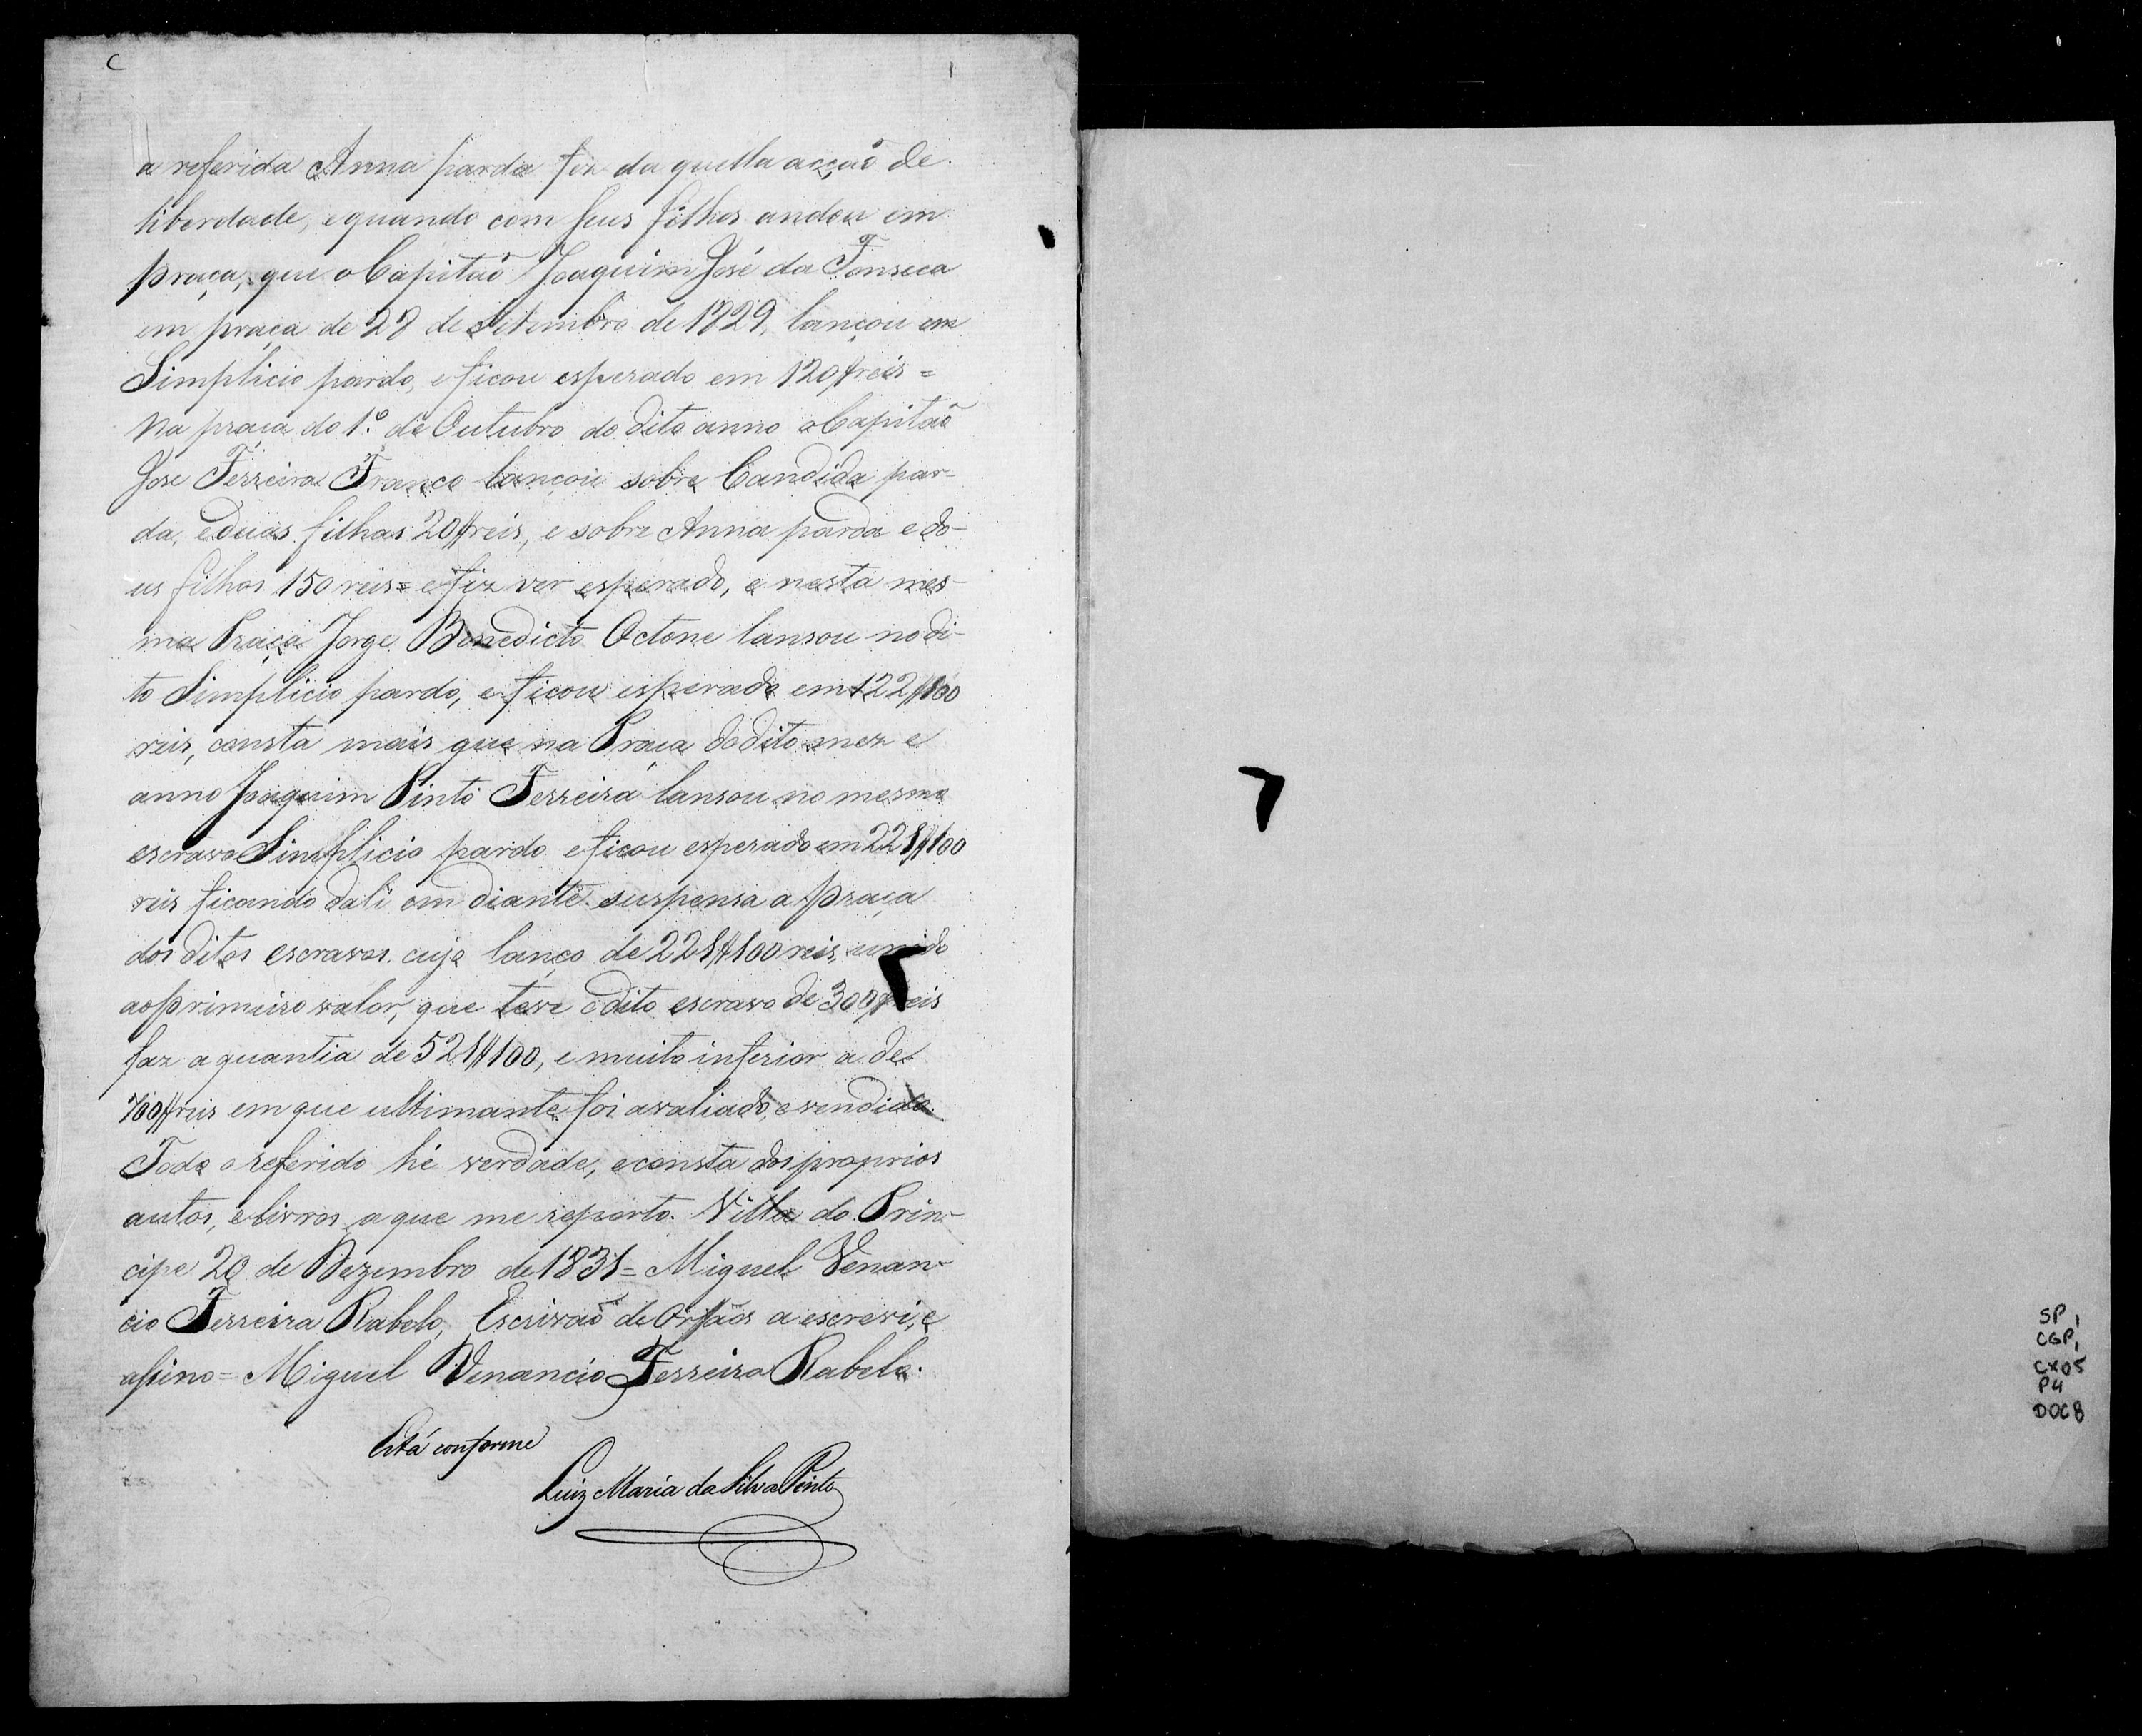 a referida Anna parda fez da quella acçaõ de
liberdade, e quando com seus filhos andou em
praça, que o Capitaõ Joaquim José da Fonseca
em praça de 28 de Setembro de 1829, lançou em
Simplicio pardo, e ficou esperado em 120$reis =
Na praça do 1º. de Outubro do dito anno o Capitaõ
Jose Ferreira Franco lançou sobre Candida par-
da, e duas filhas 20$reis, e sobre Anna parda e do-
us filhos 150 reis = e fiz ver esperado, e nesta mes-
ma Praça Jorge Benedicto Octone lansou no di-
to Simplicio pardo, e ficou esperado em 122$100
reis, consta mais que na Praça do dito mez e
anno Joaquim Pinto Ferreira lansou no mesmo
escravo Simplicio pardo e ficou esperado em 221$100
reis ficando dali em diante suspensa a praça
dos ditos escravos. cujo lanço de 221$100 reis, unido
ao primeiro valor, que teve o dito escravo de 300$reis
faz a quantia de 521$100, e muito inferior a de
700$reis em que ultimante foi avaliado, e vendido.
Todo o referido hé verdade, e consta dos proprios
autos, e livros a que me reporto. Villa do Prin-
cipe 20 de Dezembro de 1831 = Miguel Venan-
cio Ferreira Rabelo, Escrivaõ de Orfaõs a escrevi, e
assino = Miguel Venancio Ferreira Rabelo.
Está conforme
Luiz Maria da Silva Pinto
SP,
CGP,
CX05
P4
DOC8